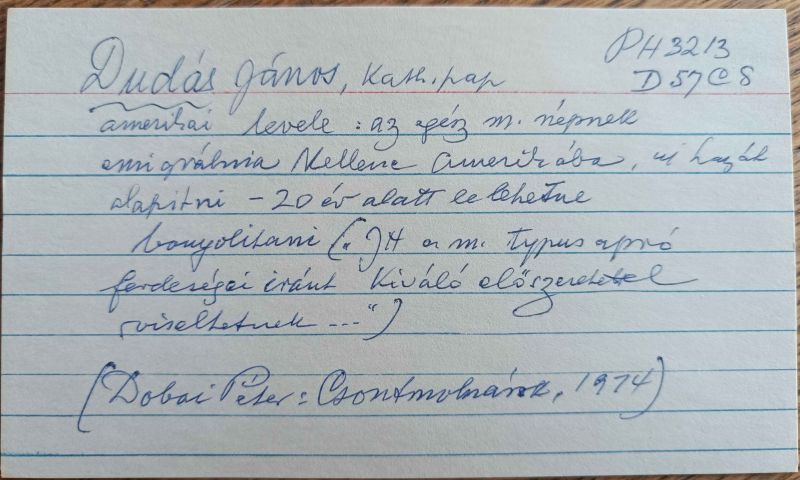 PH 3213
D 57 C 8
Dudás János, Kath. pap
amerikai levele : az egész m. népnek
emigrálnia kellene Amerikába, új hazát
alapítni – 20 év alatt le lehetne
bonyolítani („ a m. typus apró
ferdeségei iránt kiváló előszeretettel
viseltetnek ...")
(Dobai Péter : Csontmolnárok, 1974)